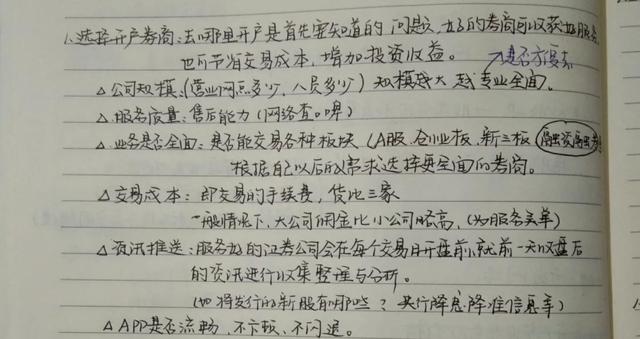 1、选择开户券商:去哪里开户是首先要知道的问题,好的券商可以获好服务
也可节省交易成本,增加投资收益。
是否方便
△ 公司规模:(营业网点多少,人员多少)规模越大越专业全面。
△ 服务质量:售后能力(网络查口碑)
△ 业务是否全面:是否能交易各种板块(A股、创业板、新三板、融资融券
根据自己以后的需求选择更全面的券商。
△ 交易成本:即交易的手续费,货比三家
一般情况下,大公司佣金比小公司略高,(为服务买单)
△ 资讯推送:服务好的证券公司会在每个交易日开盘前,就前一天收盘后
的资讯进行收集整理与分析。
(如将发行的新股有哪些?央行降息降准信息等)
△ APP是否流畅、不卡顿、不闪退。